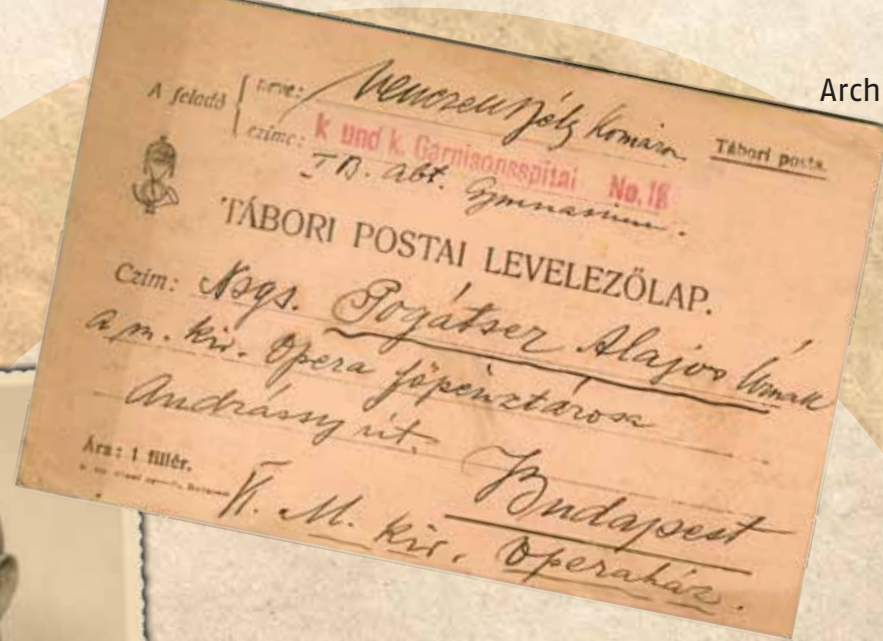 Arch
A feladó
neve: Komárom
Tábori posta.
czíme: K und k. Garnisonsspital No.
Abt. Gymnasium.
TÁBORI POSTAI LEVELEZŐLAP.
Czím: Nsgs. Pogátser Alajos Úrnak
a m. kir. Opera főpénztárosa
Andrássy út.
Ára: 1 fillér.
Budapest
M. kir. Operaház.